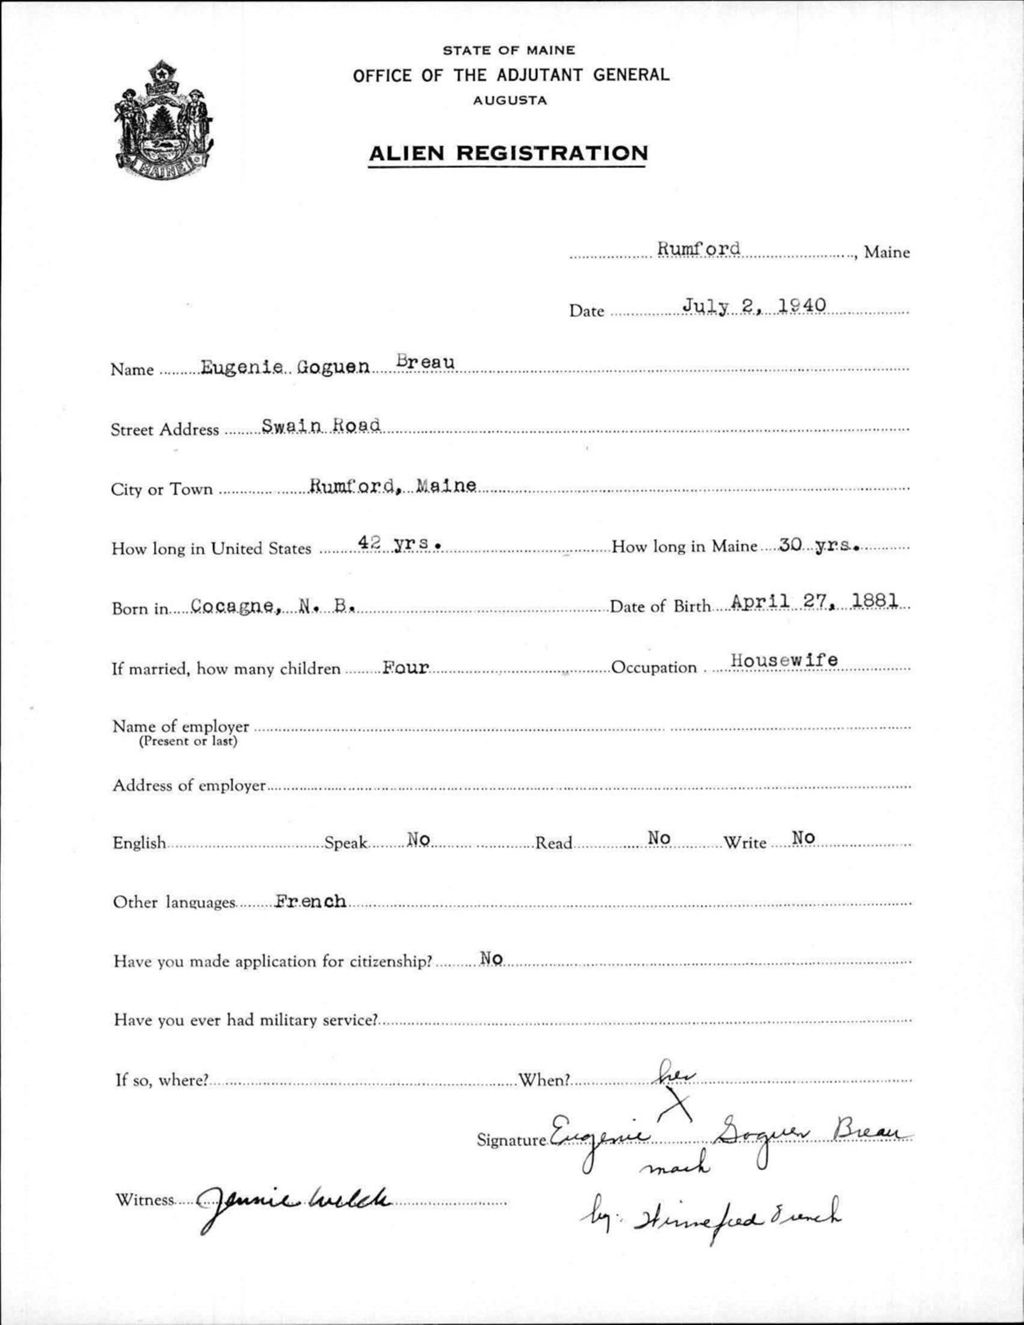 STATE OF MAINE
OFFICE OF THE ADJUTANT GENERAL
AUGUSTA
ALIEN REGISTRATION
MAINE
Rumford, Maine
Date July 2, 1940
Name Eugenie Goguen Breau
Street Address Swain Road
City or Town Rumford, Maine
How long in United States 42 yrs. How long in Maine 30 yrs.
Born in Cocagne, N. B. Date of Birth April 27, 1881
If married, how many children Four Occupation Housewife
Name of employer
(Present or last)
Address of employer
English Speak No Read No Write No
Other languages French
Have you made application for citizenship? No
Have you ever had military service?
If so, where? When?
her
X
Signature Eugenie Goguen Breau
mark
Witness Jennie Welch
by: Winnefred French